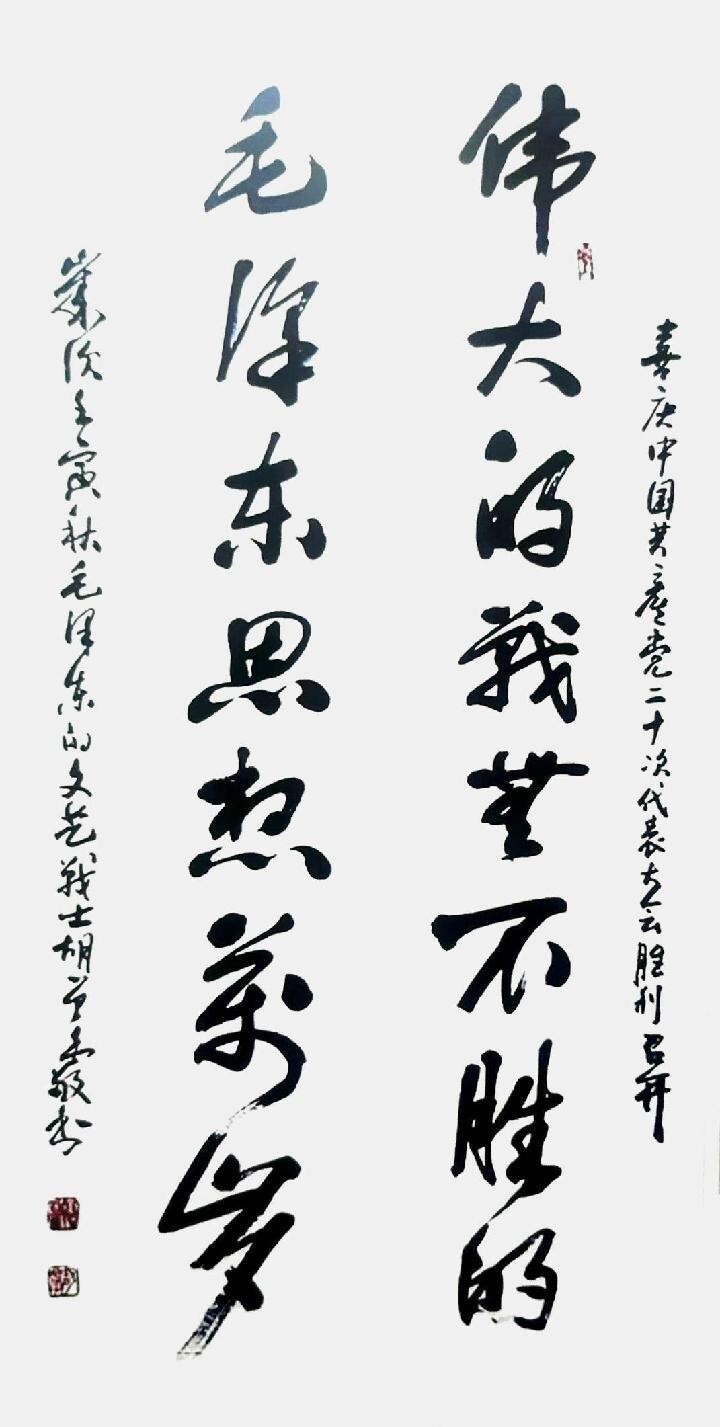 喜庆中国共产党二十次代表大会胜利召开
伟大的战無不胜的
毛泽东思想萬岁
歲次壬寅秋毛泽东的文艺战士胡敬书